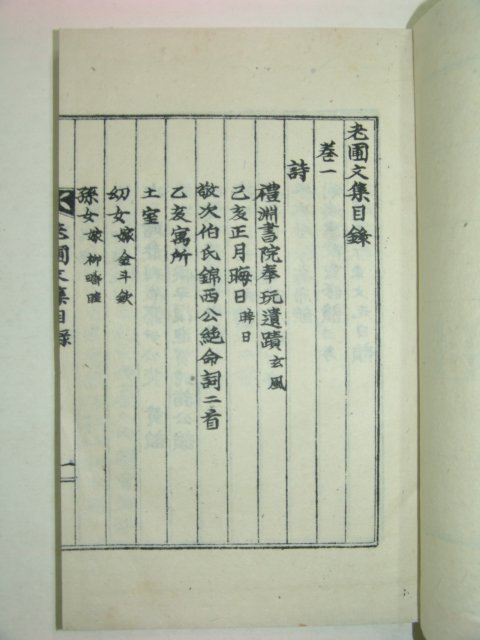 老圃文集目錄
卷一
詩
禮淵書院奉玩遺蹟 玄風
己亥正月晦日 晬日
敬次伯氏錦西公絶命詞二首
乙亥寓所
土室
幼女嫁 金斗欽
孫女嫁 柳疇睦
老圃文集目錄
一